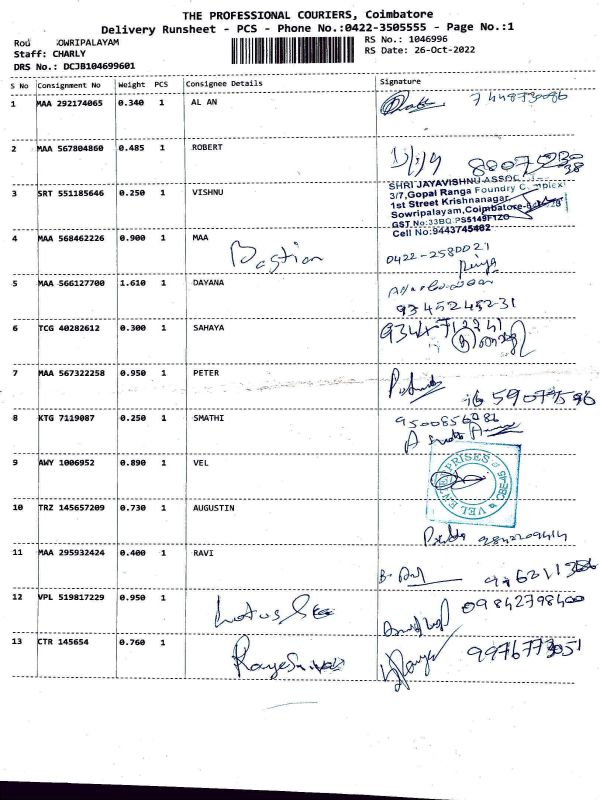 THE PROFESSIONAL COURIERS, Coimbatore
Delivery Runsheet - PCS - Phone No.:0422-3505555 - Page No.:1
Rou OWRIPALAYAM
RS No.: 1046996
Staff: CHARLY
RS Date: 26-Oct-2022
DRS No.: DCJB104699601
S No Consignment No Weight PCS Consignee Details Signature
1 MAA 292174065 0.340 1 AL AN
2 MAA 567804860 0.485 1 ROBERT
3 SRT 551185646 0.250 1 VISHNU
SHRI JAYAVISHNU ASSOC
3/7,Gopal Ranga Foundry C mplex
1st Street Krishnanagar,
Sowripalayam,Coimbatore-
GST No:33BQ PS5149F1ZO
Cell No:9443745462
4 MAA 568462226 0.900 1 MAA Bastian 0422-2580021
Priya
5 MAA 566127700 1.610 1 DAYANA
9345245231
6 TCG 40282612 0.300 1 SAHAYA
7 MAA 567322258 0.950 1 PETER
8 KTG 7119087 0.250 1 SMATHI
9500856086
9 AWY 1006952 0.890 1 VEL
VEL ENTERPRISES
10 TRZ 145657209 0.730 1 AUGUSTIN
11 MAA 295932424 0.400 1 RAVI
12 VPL 519817229 0.950 1 09842798400
13 CTR 145654 0.760 1 9976773051